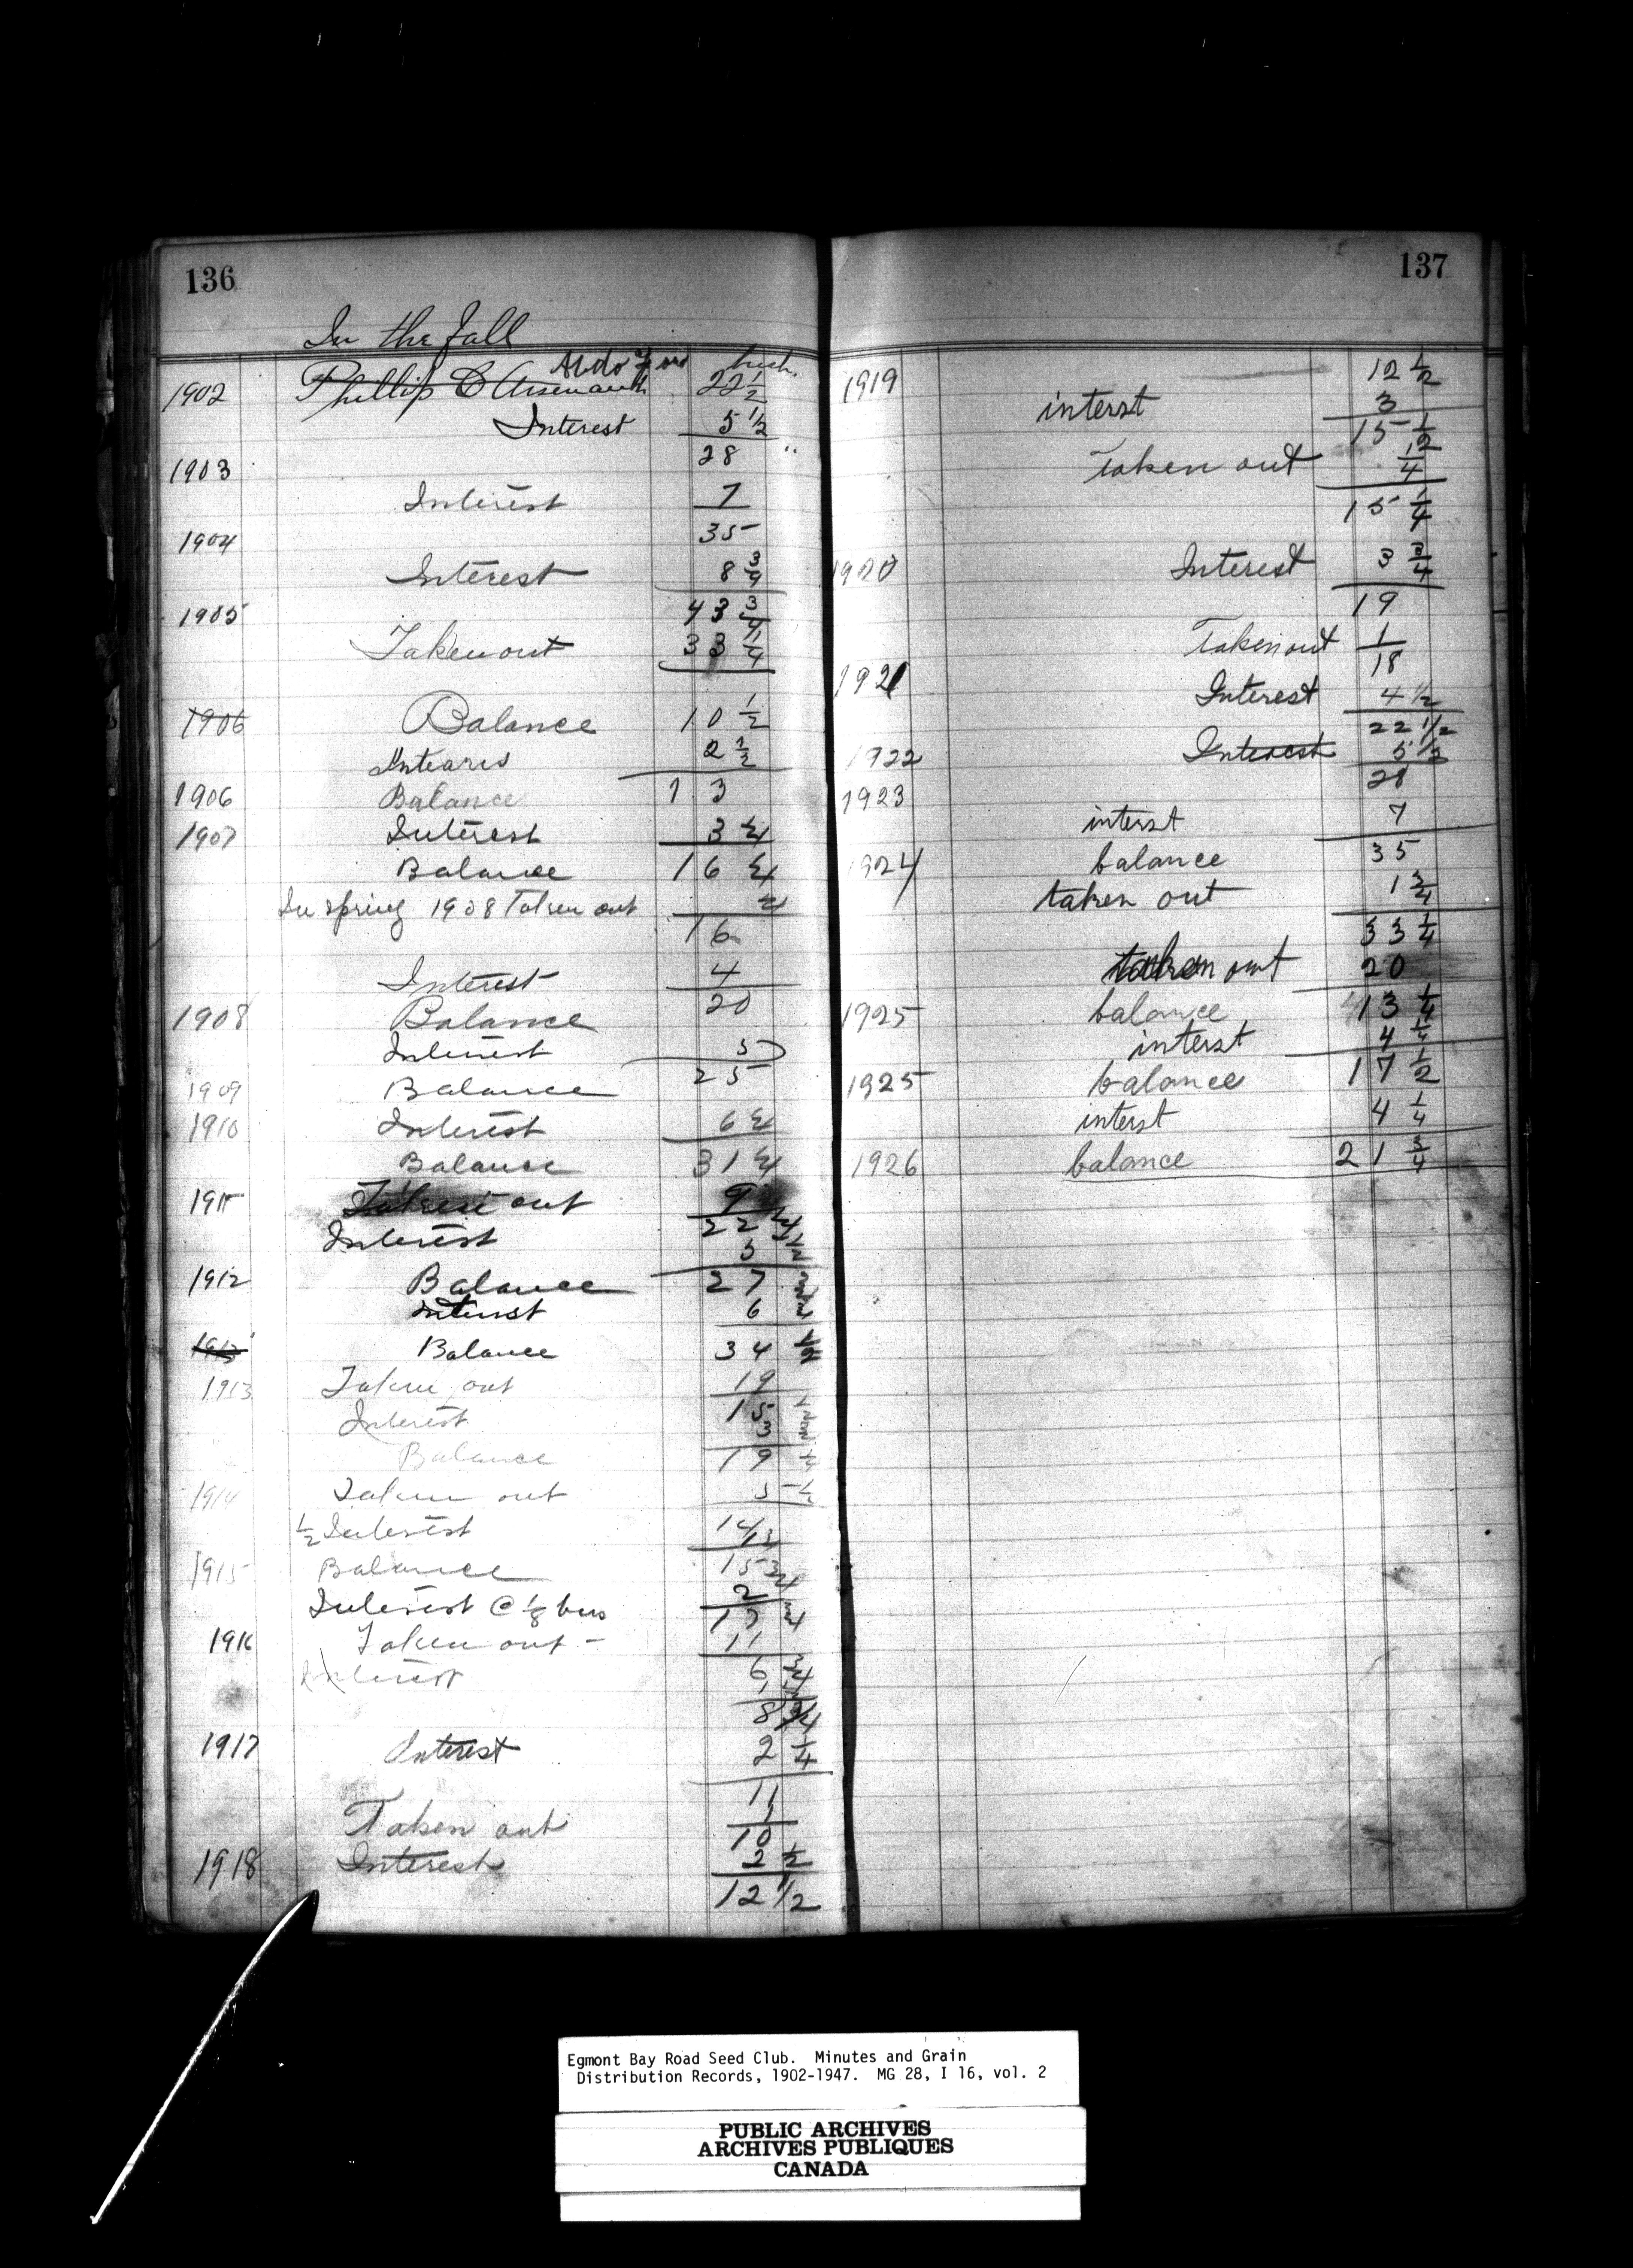 136
In the fall
bush.
1902 Phillip C Arsenault 22 1/2
Interest 5 1/2
1903 28 "
Interest 7
1904 35
Interest 8 3/4
1905 43 3/4
Taken out 33 1/4
1906 Balance 10 1/2
Intearis 2 1/2
1906 Balance 13
1907 Interest 3 1/4
Balance 16 1/4
In spring 1908 Taken out 1/4
16
Interest 4
1908 Balance 20
Interest 5
1909 Balance 25
1910 Interest 6 1/4
Balance 31 1/4
1911 Taken out 9
22 1/4
Interest 5
1912 Balance 27
Interest 6
1913 Balance 34
1913 Taken out 19
15
Interest 3
Balance 19
1914 Taken out 5
1/2 Interest 14
1915 Balance 15 3/4
Interest @ 1/8 bus 2
17
1916 Taken out - 11
Interest 6
8
1917 Interest 2 1/4
11
Taken out 1
10
1918 Interest 2 1/2
12 1/2
137
1919 12 1/2
interst 3
15 1/2
Taken out 1/4
15 1/4
1920 Interest 3 3/4
19
Taken out 1
1921 18
Interest 4 1/2
22 1/2
1922 Interest 5 1/2
28
1923
interst 7
1924 balance 35
taken out 1 3/4
33 1/4
taken out 20
1925 balance 13 1/4
interst 4 1/4
1925 balance 17 1/2
interst 4 1/4
1926 balance 21 3/4
Egmont Bay Road Seed Club. Minutes and Grain
Distribution Records, 1902-1947. MG 28, I 16, vol. 2
PUBLIC ARCHIVES
ARCHIVES PUBLIQUES
CANADA